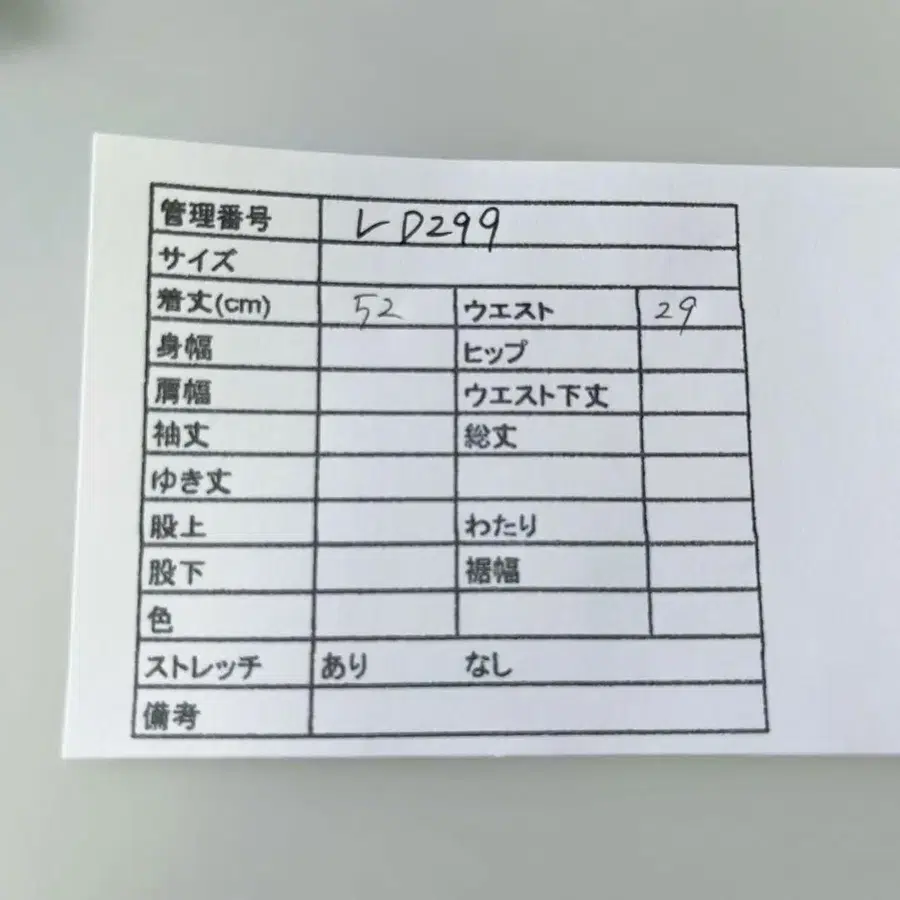 管理番号 LD299
サイズ
着丈(cm) 52 ウエスト 29
身幅 ヒップ
肩幅 ウエスト下丈
袖丈 総丈
ゆき丈
股上 わたり
股下 裾幅
色
ストレッチ あり なし
備考